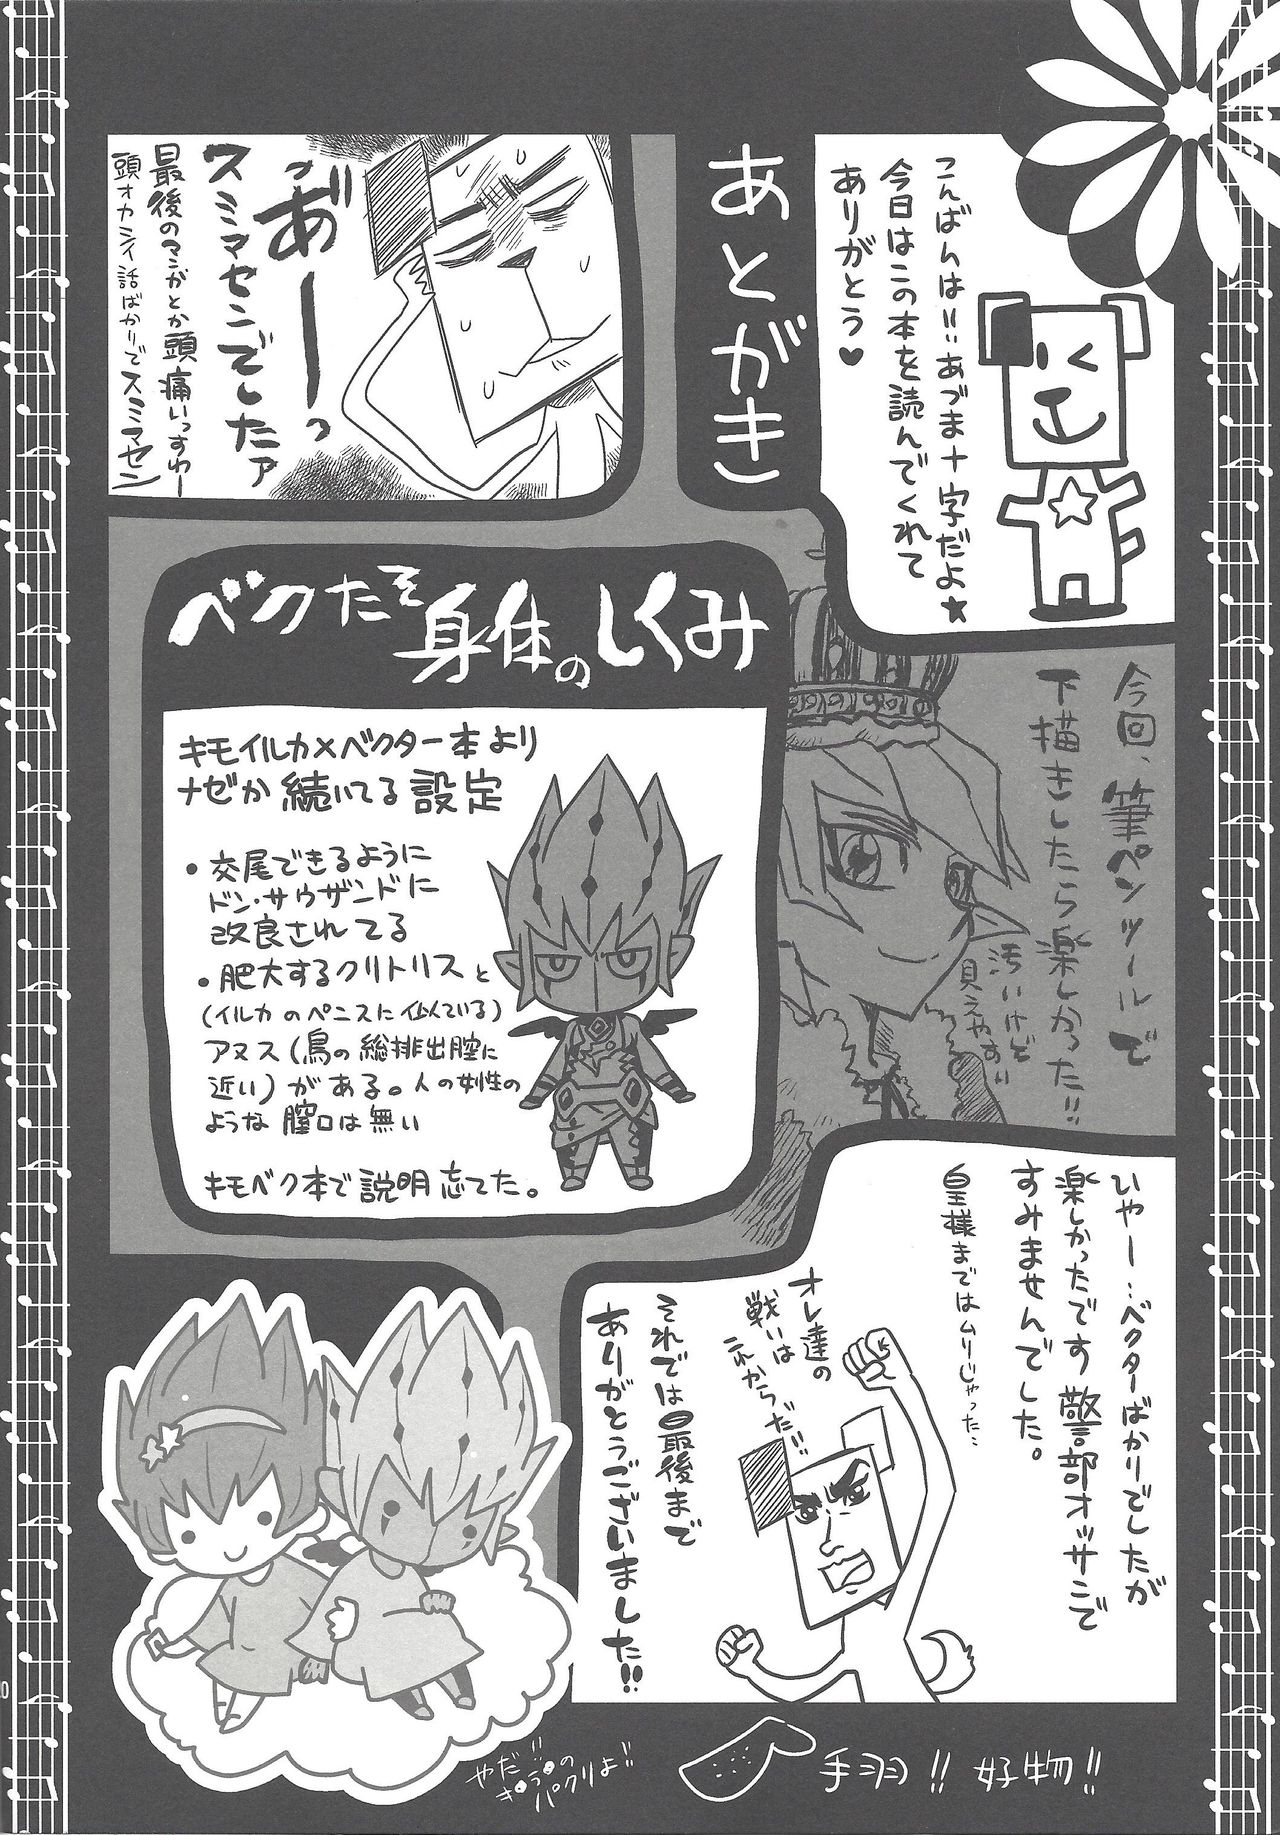 あとがき
こんばんは!!あづま十字だよ★
今日はこの本を読んでくれて
ありがとう♥
あ゛ーーっ
スミマセンでしたァ
最後のマンガとか頭痛いっすわー
頭オカシイ話ばかりでスミマセン
今回、筆ペンツールで
下描きしたら楽しかった!!
汚いけど
見えやすい
ベクたそ
身体のしくみ
キモイルカ×ベクター本より
ナゼか続いてる設定
・交尾できるように
ドン・サウザンドに
改良されてる
・肥大するクリトリスと
(イルカのペニスに似ている)
アヌス(鳥の総排出腔に
近い)がある。人の女性の
ような膣口は無い
キモベク本で説明忘れてた。
ひやー…ベクターばかりでしたが
楽しかったです警部オッサンで
すみませんでした。
皇様まではムリじゃった…
オレ達の
戦いは
これからだ!!
それでは最後まで
ありがとうございました!!
やだ!!
き○ら○の
パクリよ!!
手羽!!好物!!